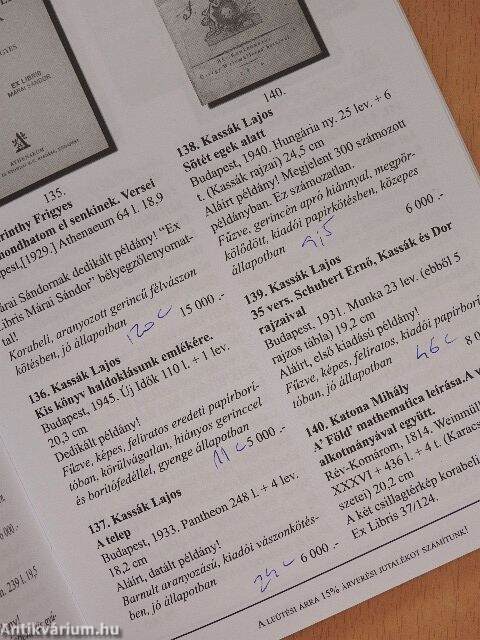 EX LIBRIS
MÁRAI SÁNDOR
ATHENAEUM
135.
rinthy Frigyes
mondhatom el senkinek. Versei
pest,[1929.] Athenaeum 64 l. 18.9
árai Sándornak dedikált példány! "Ex
Libris Márai Sándor" bélyegzőlenyomat-
tal!
Korabeli, aranyozott gerincű félvászon
kötésben, jó állapotban 15 000.-
120
136. Kassák Lajos
Kis könyv haldoklásunk emlékére.
Budapest, 1945. Új Idők 110 l. + 1 lev.
20,3 cm
Dedikált példány!
Fűzve, képes, feliratos eredeti papírborí-
tóban, körülvágatlan, hiányos gerinccel
és borítófedéllel, gyenge állapotban
5 000.-
137. Kassák Lajos
A telep
Budapest, 1933. Pantheon 248 l. + 4 lev.
18,2 cm
Aláírt, datált példány!
Barnult aranyozású, kiadói vászonkötés-
ben, jó állapotban 6 000.-
140.
138. Kassák Lajos
Sötét egek alatt
Budapest, 1940. Hungária ny. 25 lev. + 6
t. (Kassák rajzai) 24,5 cm
Aláírt példány! Megjelent 300 számozott
példányban. Ez számozatlan.
Fűzve, gerincén apró hiánnyal, megpör-
kölődött, kiadói papírkötésben, közepes
állapotban 6 000.-
139. Kassák Lajos
35 vers. Schubert Ernő, Kassák és Dor
rajzaival
Budapest, 1931. Munka 23 lev. (ebből 5
rajzos tábla) 19,2 cm
Aláírt, első kiadású példány!
Fűzve, képes, feliratos, kiadói papírborí
tóban, jó állapotban 8 0
46
140. Katona Mihály
A' Föld' mathematica leírása.A v
alkotmányával együtt.
Rév-Komárom, 1814. Weinmüll
XXXVI + 436 l. + 4 t. (Karacs
szetei) 20,2 cm
A két csillagtérkép korabeli
Ex Libris 37/124.
A LEÜTÉSI ÁRRA 15% ÁRVERÉSI JUTALÉKOT SZÁMÍTUNK!
239 l. 18,5
Antikvárium.hu